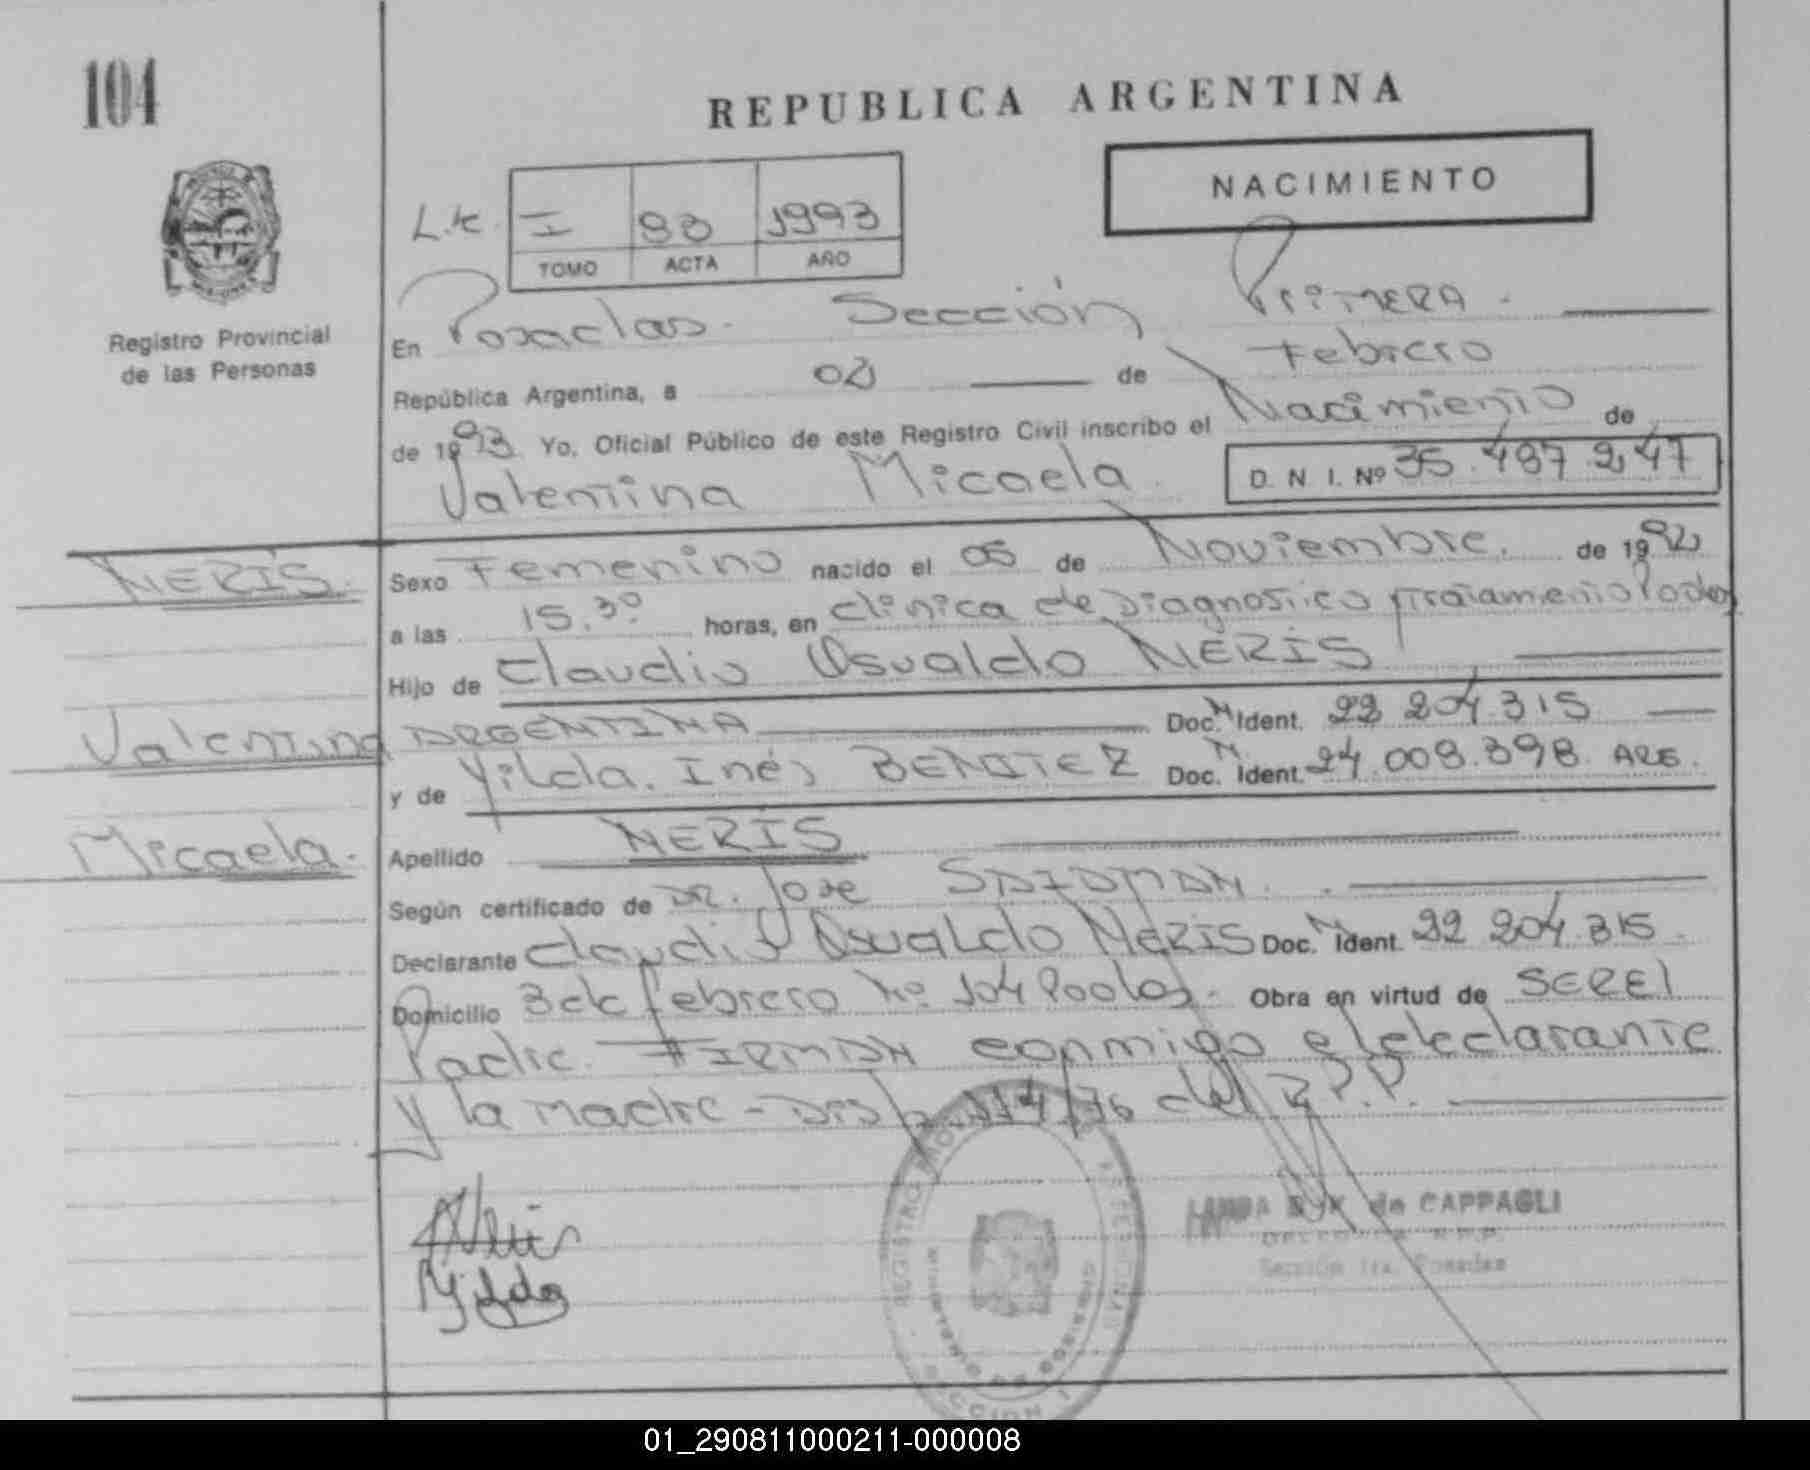 104
REPUBLICA ARGENTINA
NACIMIENTO
I 98 1993
TOMO ACTA AÑO
Registro Provincial
de las Personas
En Posadas. Sección Primera.
República Argentina, a 02 de Febrero
de 1993 Yo, Oficial Público de este Registro Civil inscribo el Nacimiento de
Valentina Micaela. D. N. I. Nº 35.487.247
NERIS. Sexo Femenino nacido el 05 de Noviembre. de 1992
a las 15.30 horas, en Clinica de Diagnostico y Tratamiento
Hijo de Claudio Osvaldo NERIS
Valentina ARGENTINA Doc. N. Ident. 22 204.315
y de Yilda. Inés BENITEZ Doc. N. Ident. 24.008.398 ARG.
Micaela. Apellido NERIS
Según certificado de DR. Jose
Declarante Claudio Osvaldo NERIS Doc. N. Ident. 22 204.315.
Domicilio 3 de febrero Nº 104 Obra en virtud de SER El
Padre. FIRMAN conmigo el declarante
y la madre - 114/76 del R.P.P.
Neris
Yilda
REGISTRO
MINISTERIO DE GOBIERNO
SECCION
de CAPPAGLI
R.P.P.
Sección 1ra. Posadas
01_290811000211-000008